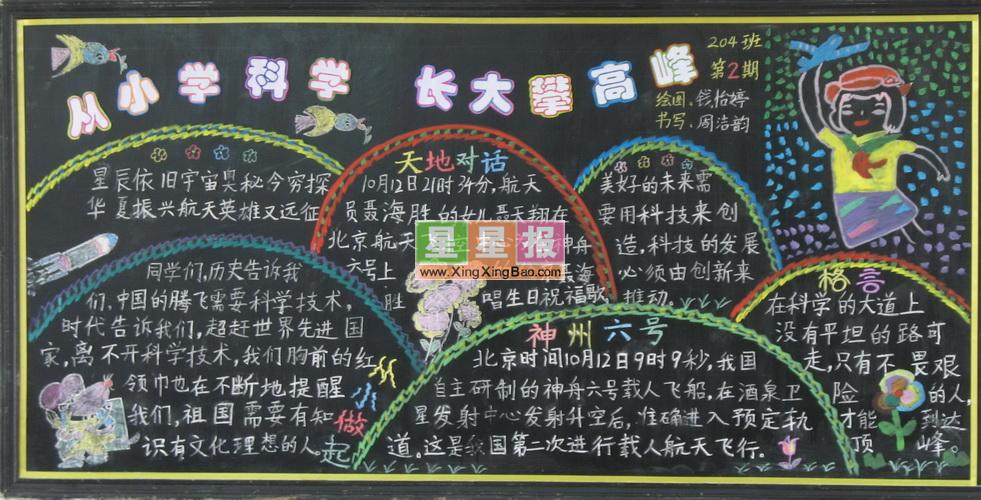 从小学科学 长大攀高峰
204班
第2期
绘图:钱怡婷
书写:周浩韵
星辰依旧宇宙奥秘今穷探
华夏振兴航天英雄又远征
天地对话
10月12日21时34分,航天
员聂海胜的女儿聂天翔在
北京航天
神舟
六号上
聂海
胜
唱生日祝福歌。
美好的未来需
要用科技来创
造,科技的发展
必须由创新来
推动。
星星报
www.XingXingBao.com
同学们,历史告诉我
们,中国的腾飞需要科学技术,
时代告诉我们,超赶世界先进国
家,离不开科学技术,我们胸前的红
领巾也在不断地提醒
我们,祖国需要有知
识有文化理想的人。
从小做起
神州六号
北京时间10月12日9时9秒,我国
自主研制的神舟六号载人飞船,在酒泉卫
星发射中心发射升空后,准确进入预定轨
道。这是我国第二次进行载人航天飞行。
格言
在科学的大道上
没有平坦的路可
走,只有不畏艰
险的人,
才能到达
顶峰。